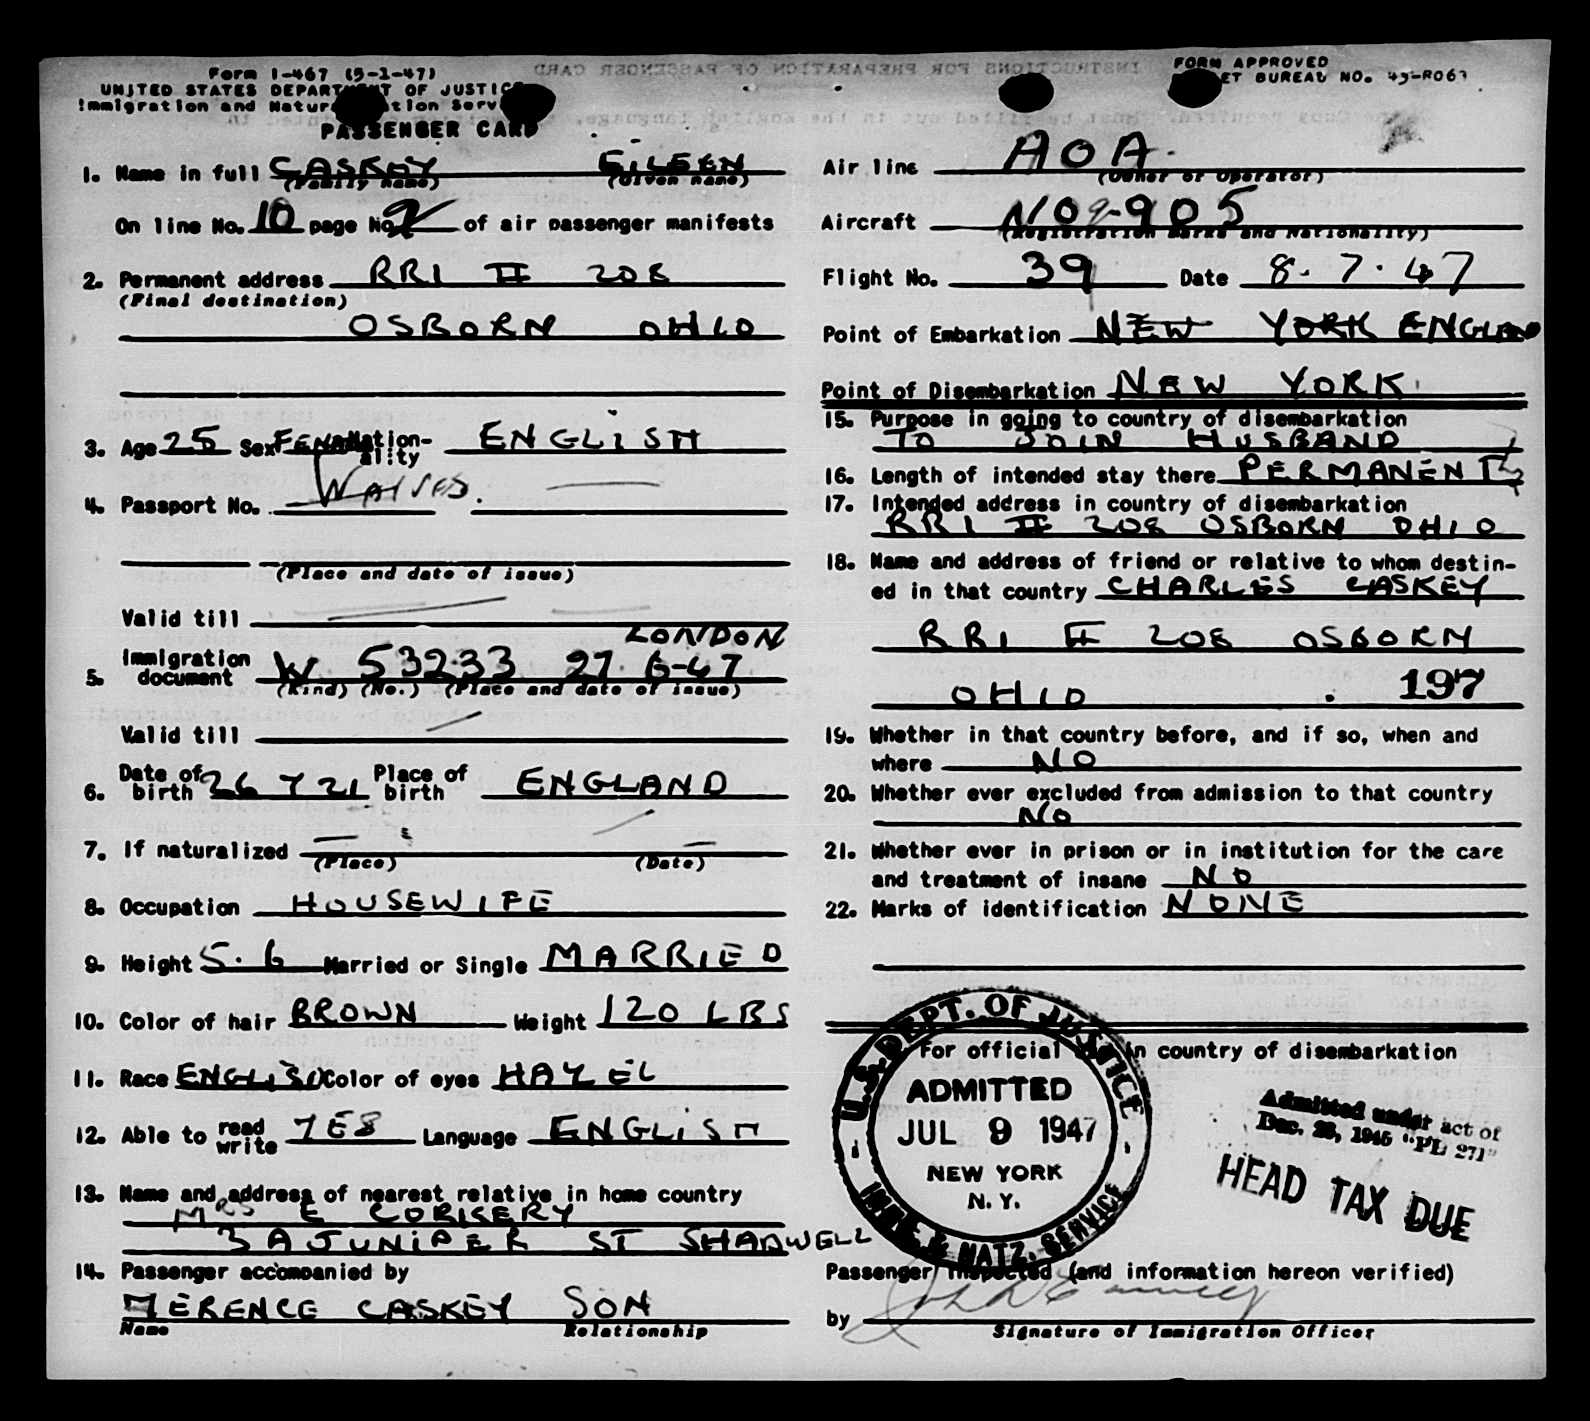 Form I-467 (5-1-47)
UNITED STATES DEPARTMENT OF JUSTICE
Immigration and Naturalization Service
PASSENGER CARD
FORM APPROVED
BUREAU NO. 43-R063
1. Name in full CASKEY EILEEN
(Family name) (Given name)
On line No. 10 page No. 2 of air passenger manifests
2. Permanent address RR1 # 208
(Final destination)
OSBORN OHIO
3. Age 25 Sex FEMALE Nation-ality ENGLISH
4. Passport No. WAIVED.
(Place and date of issue)
Valid till
LONDON
5. Immigration document W 53233 27.6-47
(Kind) (No.) (Place and date of issue)
Valid till
6. Date of birth 26 7 21 Place of birth ENGLAND
7. If naturalized
(Place) (Date)
8. Occupation HOUSEWIFE
9. Height 5.6 Married or Single MARRIED
10. Color of hair BROWN Weight 120 LBS
11. Race ENGLISH Color of eyes HAZEL
12. Able to read write YES Language ENGLISH
13. Name and address of nearest relative in home country
MRS E CORKERY
3A JUNIPER ST SHADWELL
14. Passenger accompanied by
TERENCE CASKEY SON
Name Relationship
Air line AOA.
(Owner or Operator)
Aircraft N 90905
(Registration marks and Nationality)
Flight No. 39 Date 8.7.47
Point of Embarkation NEW YORK ENGLAND
Point of Disembarkation NEW YORK
15. Purpose in going to country of disembarkation
TO JOIN HUSBAND
16. Length of intended stay there PERMANENTLY
17. Intended address in country of disembarkation
RR1 # 208 OSBORN OHIO
18. Name and address of friend or relative to whom destin-
ed in that country CHARLES CASKEY
RR1 # 208 OSBORN
OHIO . 197
19. Whether in that country before, and if so, when and
where NO
20. Whether ever excluded from admission to that country
NO
21. Whether ever in prison or in institution for the care
and treatment of insane NO
22. Marks of identification NONE
For official use in country of disembarkation
U.S. DEPT. OF JUSTICE
ADMITTED
JUL 9 1947
NEW YORK
N. Y.
IMM. & NATZ. SERVICE
Admitted under act of
Dec. 28, 1945 "PL 271"
HEAD TAX DUE
Passenger inspected (and information hereon verified)
by
Signature of Immigration Officer